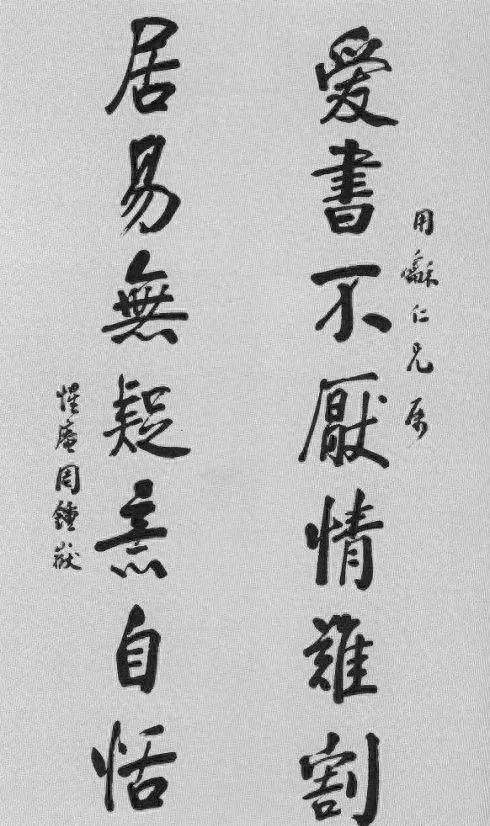 用龢仁兄屬
愛書不厭情難割
居易無疑意自恬
惺庵周鍾嶽